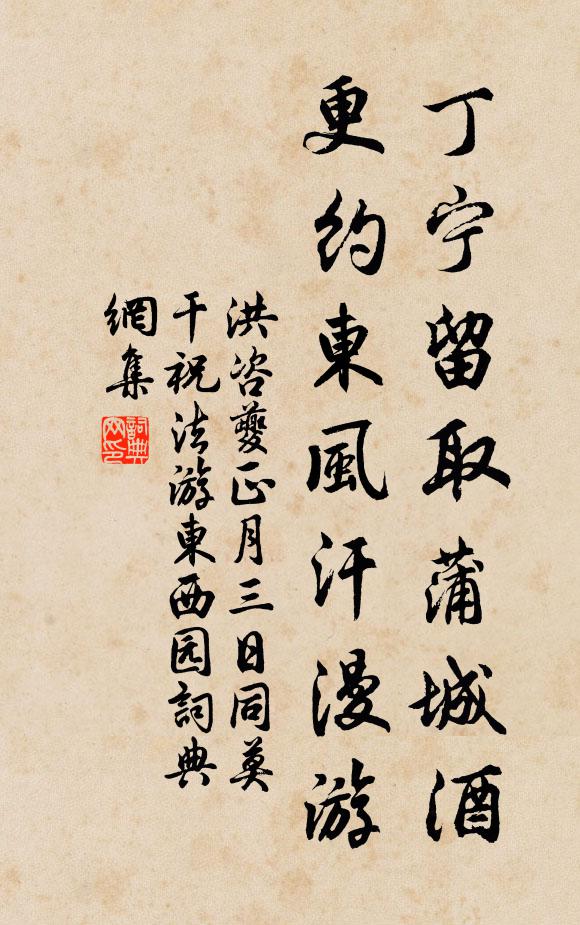 丁宁留取蒲城酒
更约東風汗漫游
洪咨夔正月三日同莫
干祝法游東西园詞典
網集
詞典網印